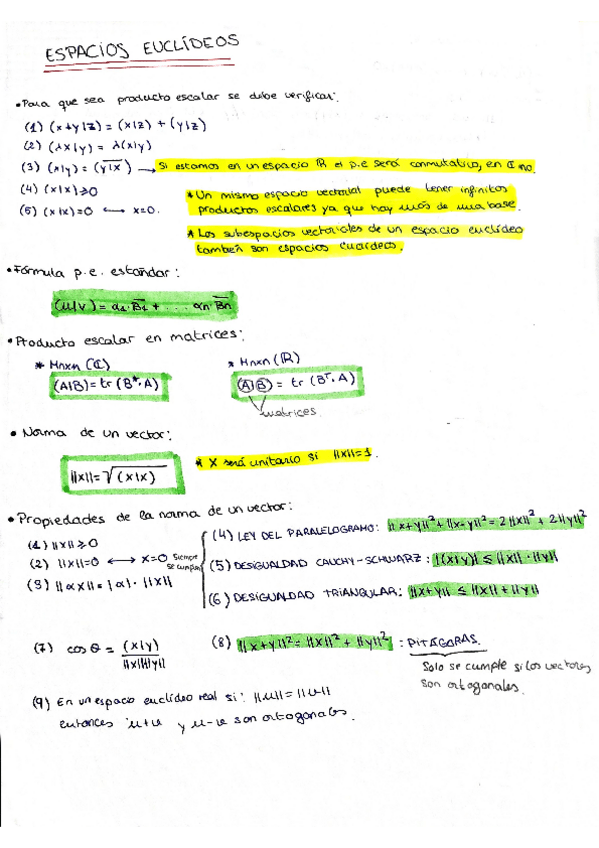 ESPACIOS EUCLÍDEOS
• Para que sea producto escalar se debe verificar:
(1) (x+y|z) = (x|z) + (y|z)
(2) (λx|y) = λ(x|y)
(3) (x|y) = (\overline{y|x}) → Si estamos en un espacio ℝ el p.e será conmutativo, en ℂ no.
(4) (x|x) ⩾ 0
(5) (x|x) = 0 ⟷ x=0.
* Un mismo espacio vectorial puede tener infinitos
productos escalares ya que hay más de una base.
* Los subespacios vectoriales de un espacio euclídeo
también son espacios euclídeos.
• Fórmula p.e. estándar:
(u|v) = α1·\overline{B1} + ... αn \overline{Bn}
• Producto escalar en matrices:
* Mnxn (ℂ)
(A|B) = tr (B*·A)
* Mnxn (ℝ)
(A|B) = tr (Bᵀ·A)
matrices
• Norma de un vector:
||x|| = √(x|x)
* X será unitario si ||x||=1.
• Propiedades de la norma de un vector:
(1) ||x|| ⩾ 0
(2) ||x||=0 ⟷ x=0 Siempre se cumplen
(3) ||αx|| = |α|·||x||
(4) LEY DEL PARALELOGRAMO: ||x+y||² + ||x-y||² = 2||x||² + 2||y||²
(5) DESIGUALDAD CAUCHY-SCHWARZ: |(x|y)| ≤ ||x||·||y||
(6) DESIGUALDAD TRIANGULAR: ||x+y|| ≤ ||x|| + ||y||
(7) cos θ = (x|y) / ||x||||y||
(8) ||x+y||² = ||x||² + ||y||² : PITÁGORAS.
Solo se cumple si los vectores
son ortogonales.
(9) En un espacio euclídeo real si: ||u|| = ||v||
entonces u+v y u-v son ortogonales.